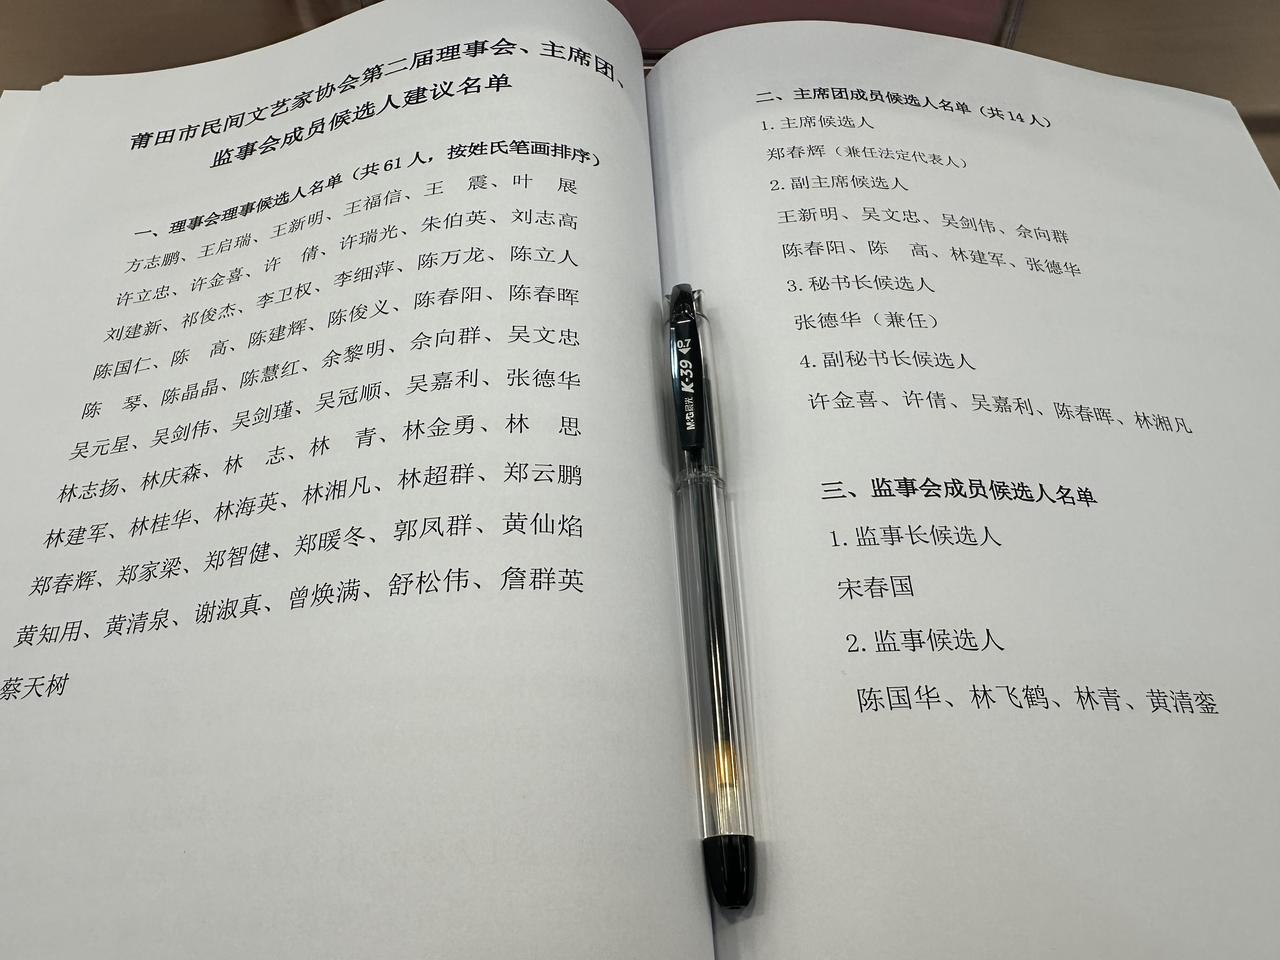 莆田市民间文艺家协会第二届理事会、主席团、
监事会成员候选人建议名单
一、理事会理事候选人名单（共 61 人，按姓氏笔画排序）
方志鹏、王启瑞、王新明、王福信、王　震、叶　展
许立忠、许金喜、许　倩、许瑞光、朱伯英、刘志高
刘建新、祁俊杰、李卫权、李细萍、陈万龙、陈立人
陈国仁、陈　高、陈建辉、陈俊义、陈春阳、陈春晖
陈　琴、陈晶晶、陈慧红、余黎明、佘向群、吴文忠
吴元星、吴剑伟、吴剑瑾、吴冠顺、吴嘉利、张德华
林志扬、林庆森、林　志、林　青、林金勇、林　思
林建军、林桂华、林海英、林湘凡、林超群、郑云鹏
郑春辉、郑家梁、郑智健、郑暖冬、郭凤群、黄仙焰
黄知用、黄清泉、谢淑真、曾焕满、舒松伟、詹群英
蔡天树
二、主席团成员候选人名单（共 14 人）
1. 主席候选人
郑春辉（兼任法定代表人）
2. 副主席候选人
王新明、吴文忠、吴剑伟、佘向群
陈春阳、陈　高、林建军、张德华
3. 秘书长候选人
张德华（兼任）
4. 副秘书长候选人
许金喜、许倩、吴嘉利、陈春晖、林湘凡
三、监事会成员候选人名单
1. 监事长候选人
宋春国
2. 监事候选人
陈国华、林飞鹤、林青、黄清銮
0.7
K-39
M&G晨光